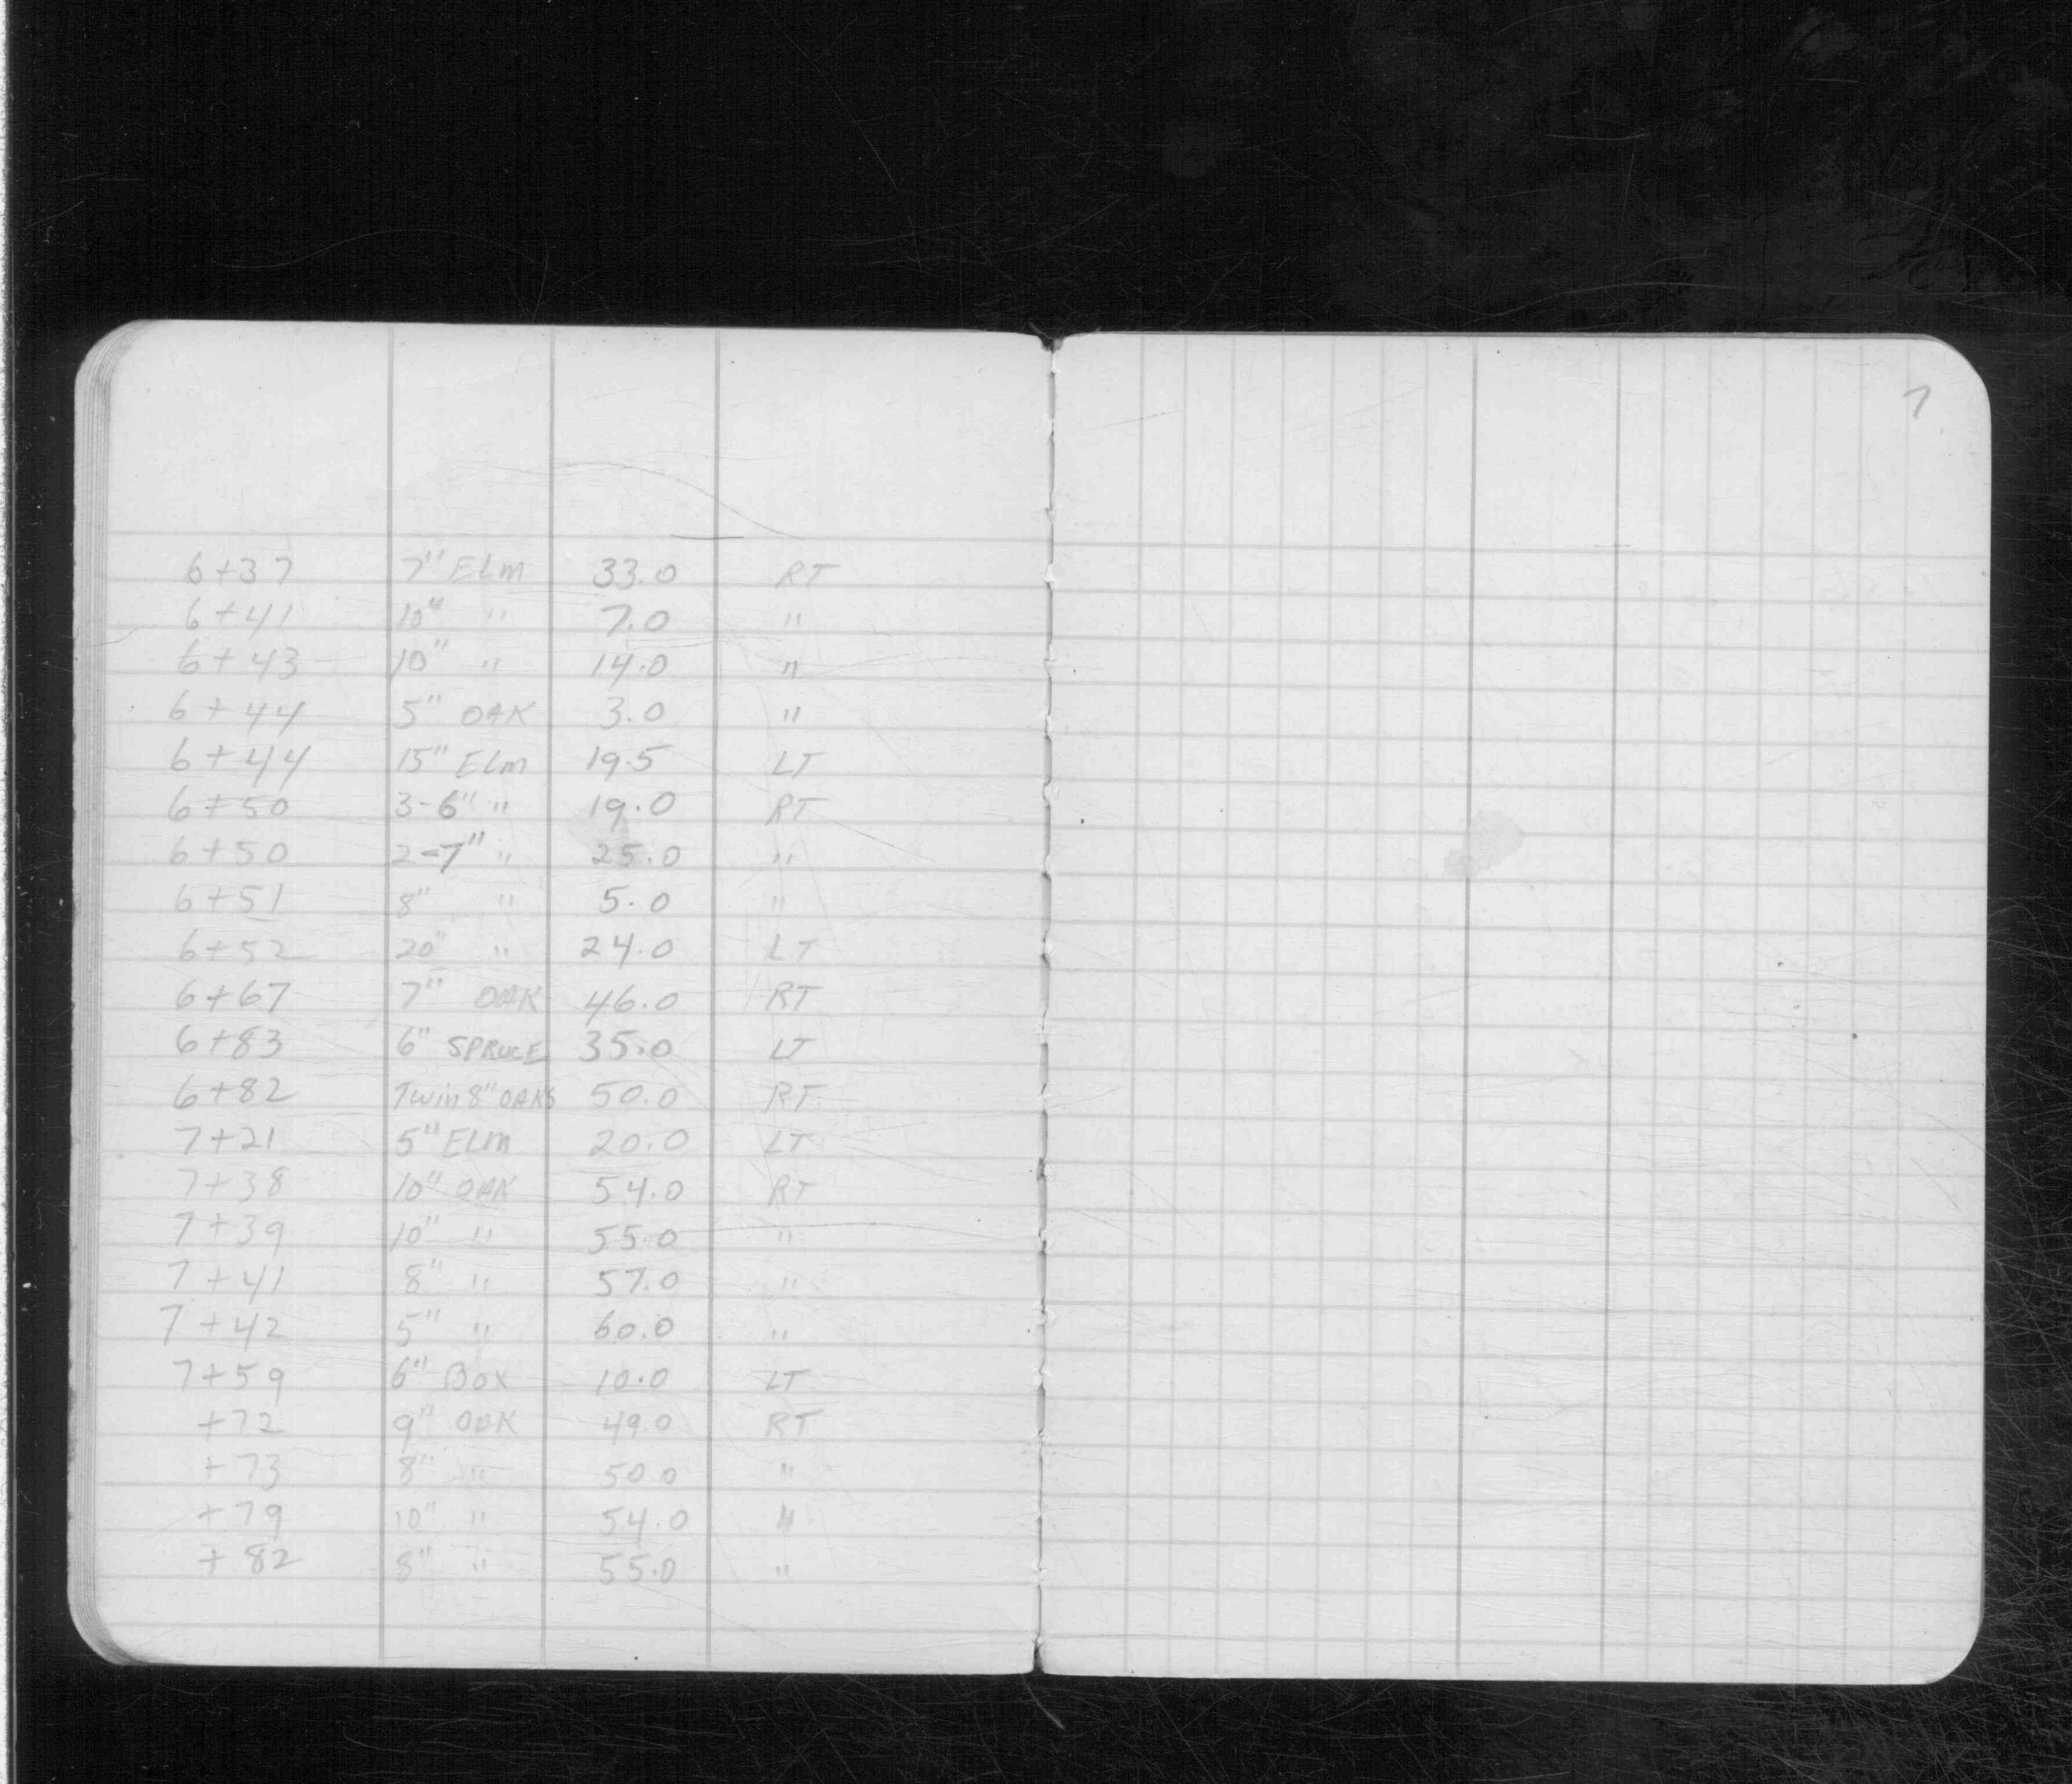 7
6+37 7" ELM 33.0 RT
6+41 10" " 7.0 "
6+43 10" " 14.0 "
6+44 5" OAK 3.0 "
6+44 15" ELM 19.5 LT
6+50 3-6" " 19.0 RT
6+50 2-7" " 25.0 "
6+51 8" " 5.0 "
6+52 20" " 24.0 LT
6+67 7" OAK 46.0 RT
6+83 6" SPRUCE 35.0 LT
6+82 Twin 8" OAKS 50.0 RT
7+21 5" ELM 20.0 LT
7+38 10" OAK 54.0 RT
7+39 10" " 55.0 "
7+41 8" " 57.0 "
7+42 5" " 60.0 "
7+59 6" Box 10.0 LT
+72 9" OAK 49.0 RT
+73 8" " 50.0 "
+79 10" " 54.0 "
+82 8" " 55.0 "